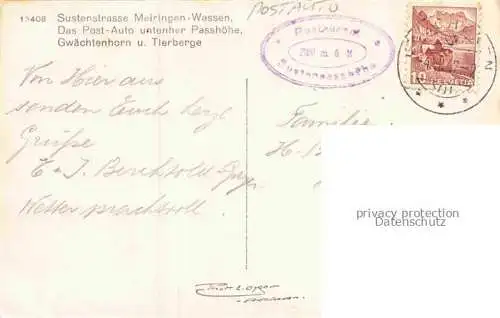 13408 Sustenstrasse Meiringen-Wassen,
Das Post-Auto unterher Passhöhe,
Gwächtenhorn u. Tierberge
POSTAUTO
Sustenpasshöhe
HELVETIA
Von Hier aus
senden Euch herzl.
Grüße
Wetter prachtvoll.
Familie
H. B
privacy protection
watermark